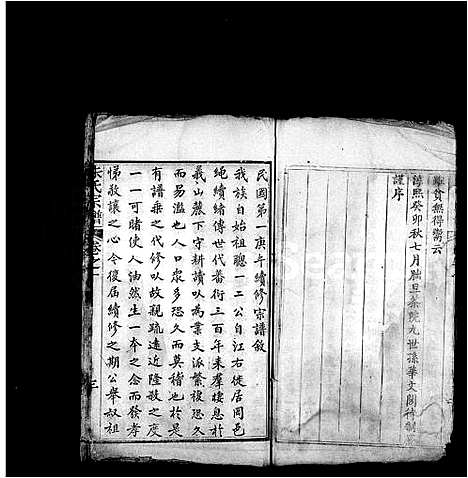 貧無得鬻云
淳熙癸卯秋七月朏旦
九世孫華文閣待制
謹序
民國第一庚午續修宗譜敘
我族自始祖聰一二公自江右徙居同邑
繩繩緒緒傳世代蕃衍三百年来羣棲息於
義山麓下守耕讀以為業支派繁複恐久
而易濫也人口眾多恐久而莫稽也於是
有譜乘之代修以故親疏遠近隆殺之度
一一可睹使人油然生一本之念而發孝
悌敬讓之心今復屆續修之期公舉叔祖
氏宗譜